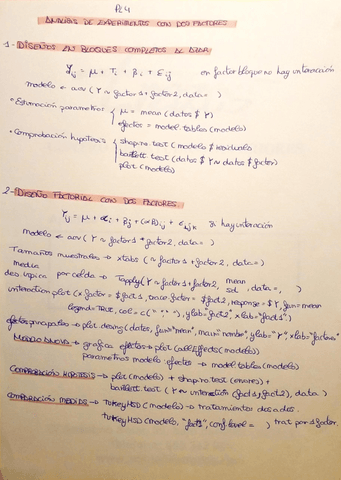 PL4
ANÁLISIS DE EXPERIMENTOS CON DOS FACTORES
1- DISEÑOS EN BLOQUES COMPLETOS AL AZAR
Yij = μ + Ti + βj + εij en factor bloque no hay interacción
modelo ← aov (Y ~ factor1 + factor2, data= )
• Estimación parámetros { μ = mean (datos $ Y)
efectos = model.tables (modelo)
• Comprobación hipótesis { shapiro.test (modelo $ residuals)
bartlett.test (datos $ Y ~ datos $ factor)
plot (modelo)
2- DISEÑO FACTORIAL CON DOS FACTORES
Yijk = μ + αi + βj + (αβ)ij + εijk si hay interacción
modelo ← aov (Y ~ factor1 * factor2, data= )
Tamaños muestrales → xtabs (~ factor1 + factor2, data=)
media
desv típica por celda → Tapply (Y ~ factor1 + factor2, mean
sd, data= , )
interaction.plot (x.factor = $fact1, trace.factor = $fact2, response = $Y, fun=mean
legend=T, col = c(" " "), ylab="fact2", xlab="fact1")
efectos principales → plot.design (datos, fun="mean", main="nombre", ylab="Y", xlab="factores")
MODELO ANOVA → gráfica efectos → plot (allEffects (modelo)
parámetros modelo: efectos → model.tables (modelo)
COMPROBACIÓN HIPÓTESIS → plot (modelo) + shapiro.test (errores) +
bartlett.test (Y ~ interaction (fact1, fact2), data)
COMPARACIÓN MEDIAS → TukeyHSD (modelo) → tratamientos dos a dos.
TukeyHSD (modelo, "fact1", conf.level = ) trat por 1 factor.